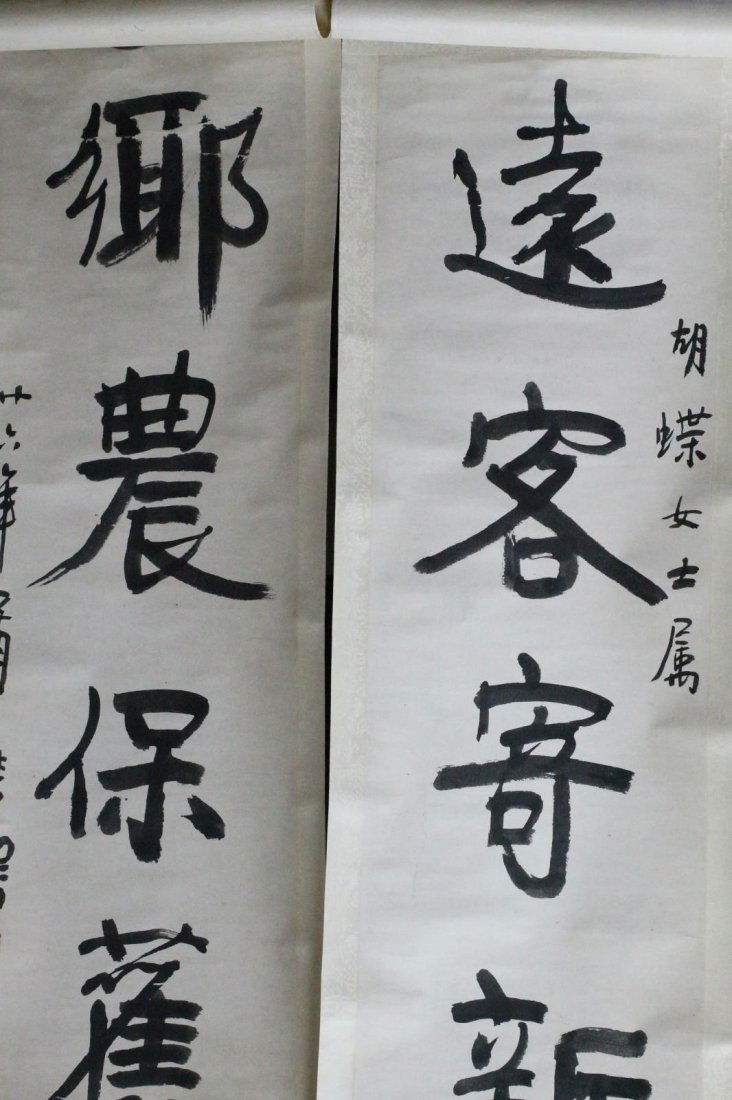 胡蝶女士属
遠客寄新
鄉農保舊
廿六年